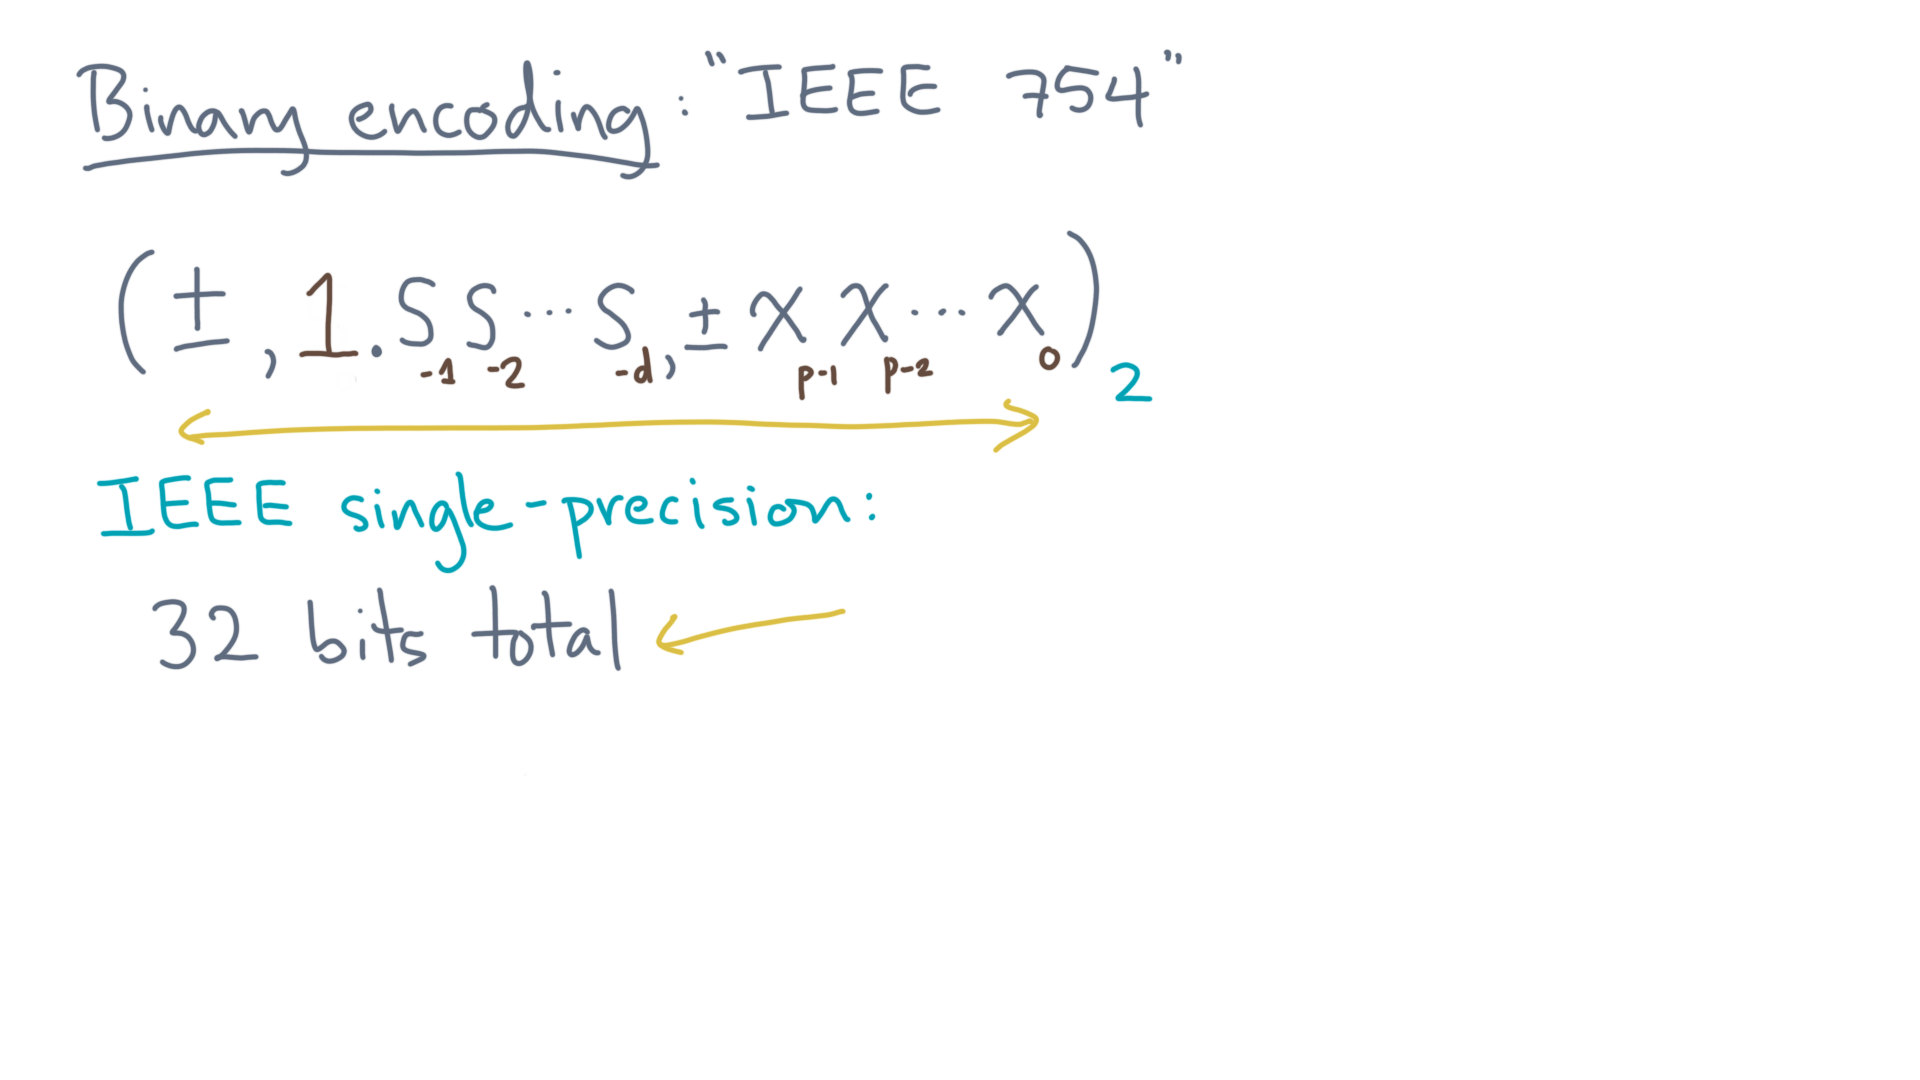 Binary encoding: "IEEE 754"
(±, 1.SS···S, ±XX···X)₂
-1 -2 -d p-1 p-2 0
IEEE single-precision:
32 bits total